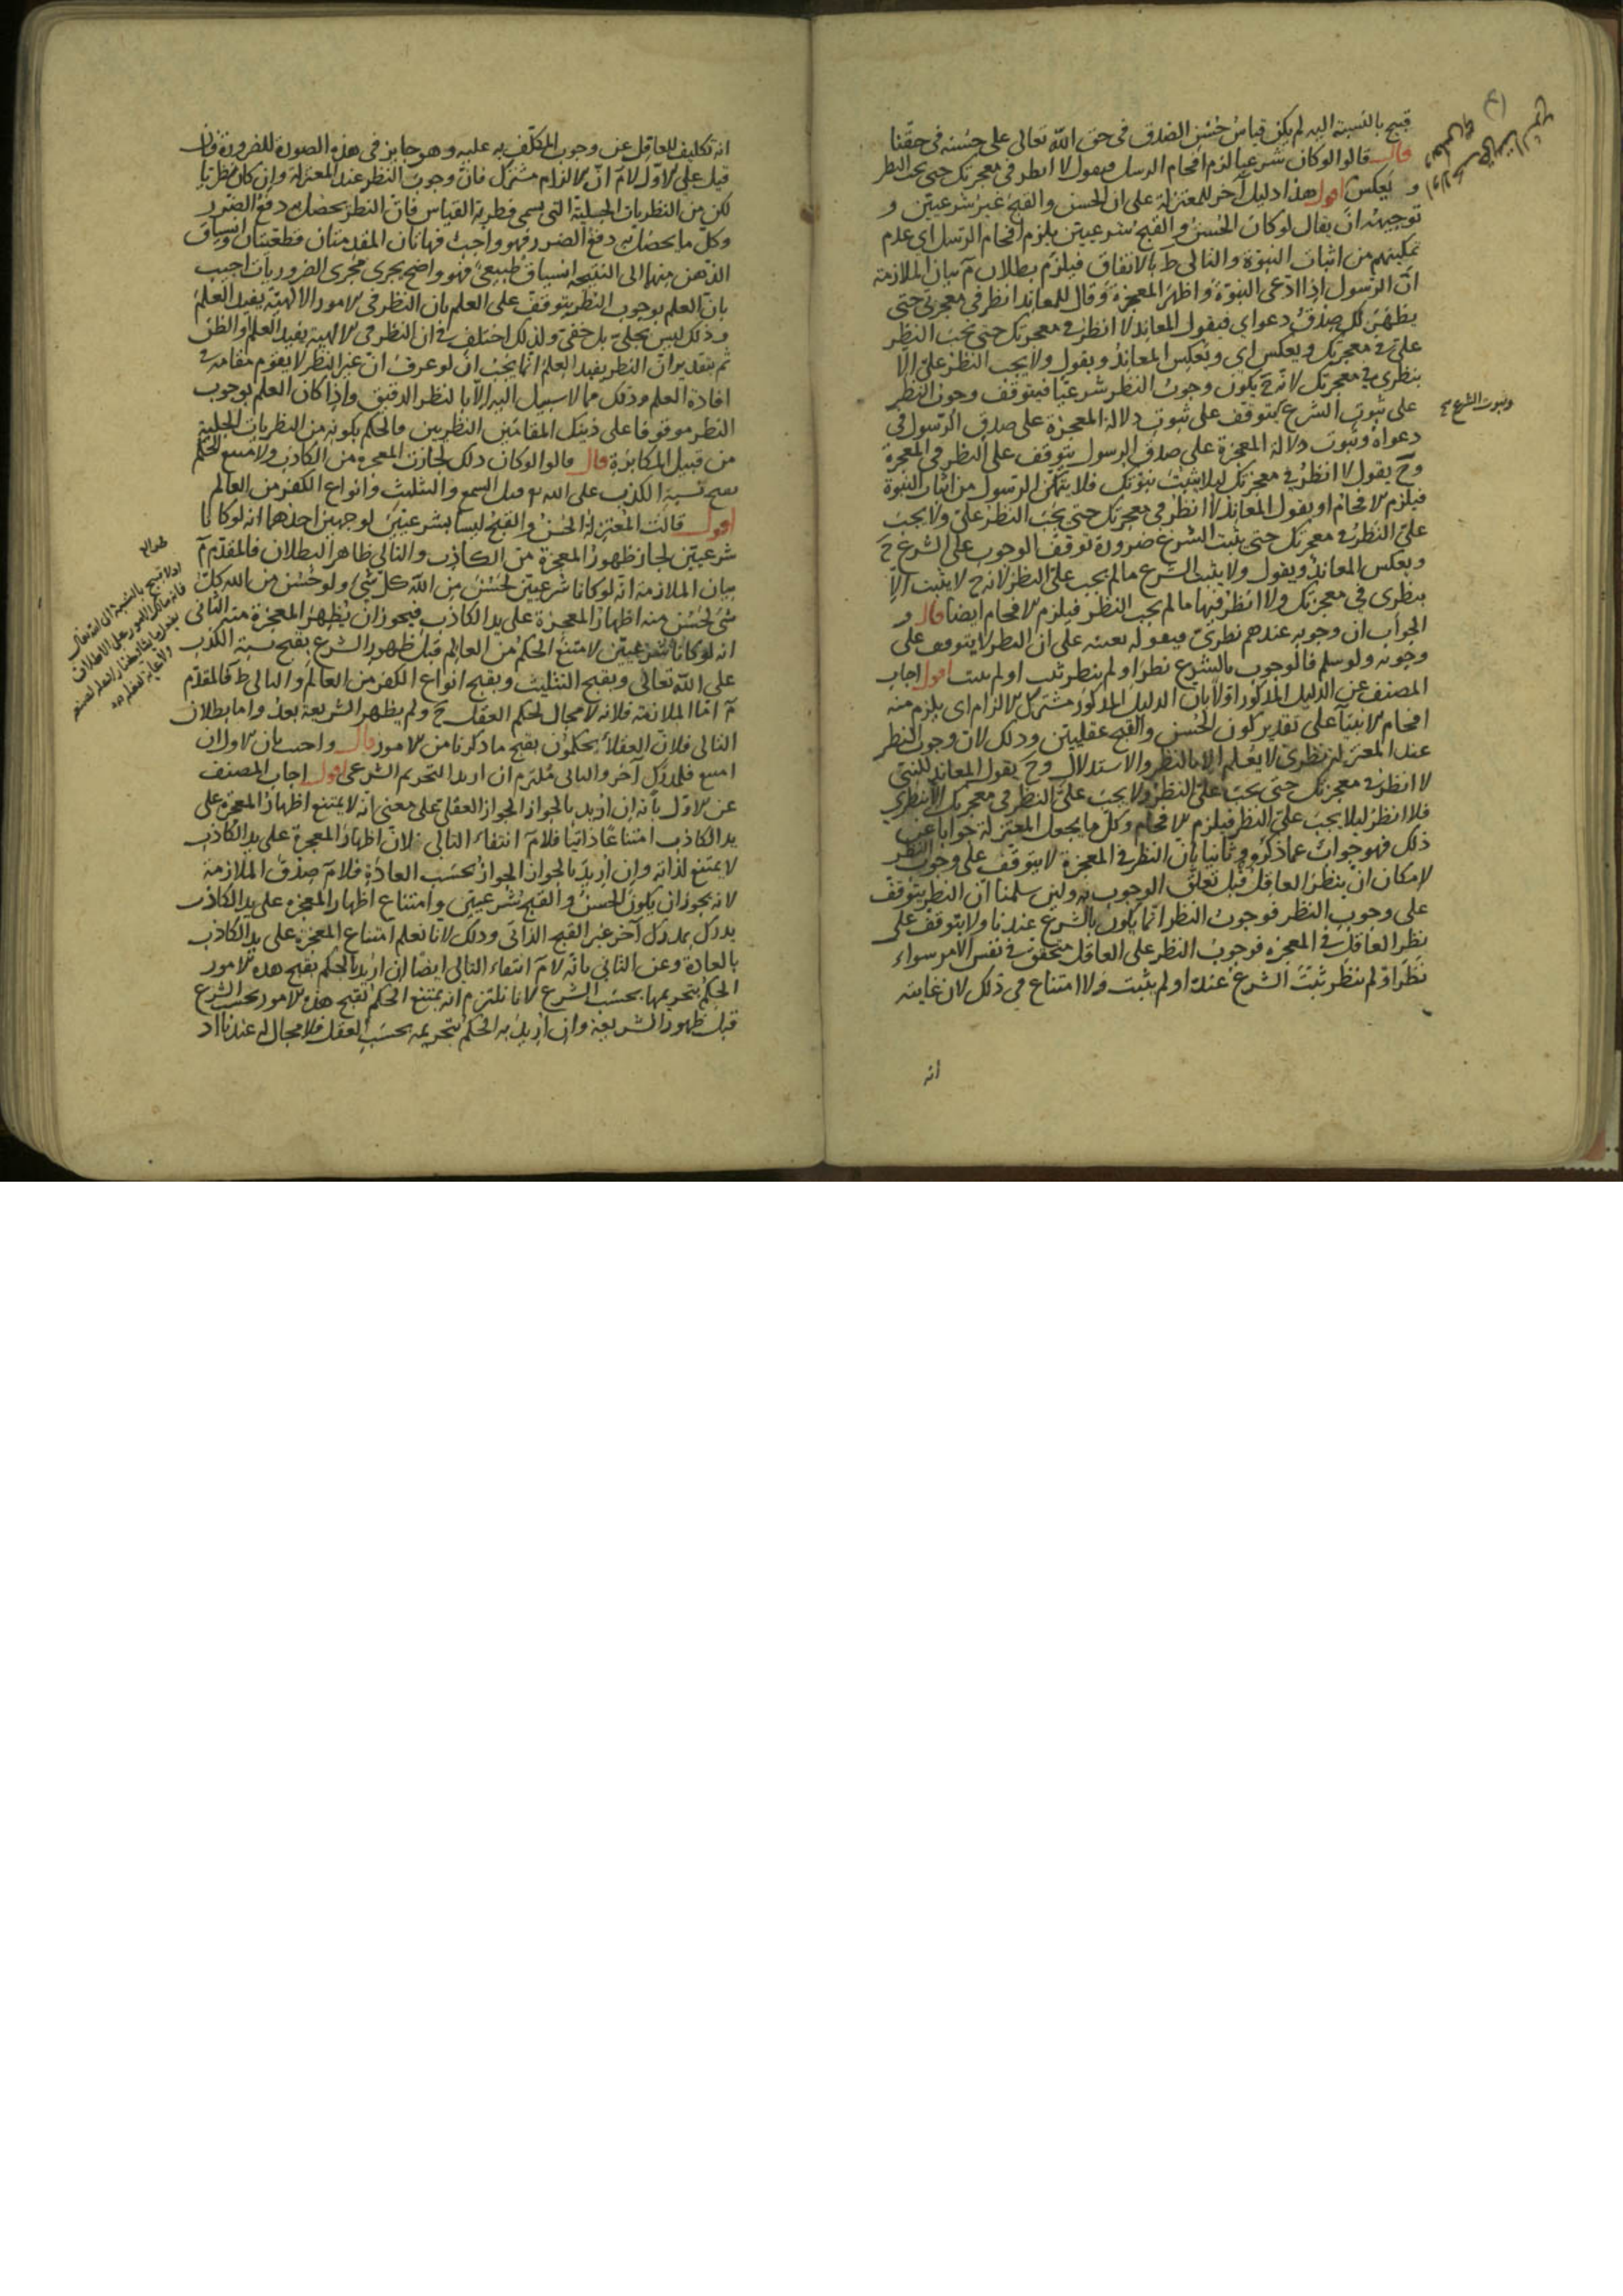 قبيح بالنسبة اليه لم يكن قياس حُسْن الصدق في حق الله تعالى على حسنه في حقنا
قال قالوا لو كان شرعيا لزم افحام الرسل فيقول لا انظر في معجزتك حتى يجب النظر
و يعكس اقول هذا دليل آخر للمعتزلة على ان الحسن والقبح غير شرعيتين و
توجيهه ان يقال لو كان الحُسن والقبح شرعيتين يلزم افحام الرسل اي عدم
تمكينهم من اثبات النبوة والتالي ط بالاتفاق فيلزم بطلان م بيان الملازمة
ان الرسول اذا ادعى النبوّة واظهر المعجزة وقال للمعاند انظر في معجزتي حتى
يظهر لك صدق دعواي فيقول المعاند لا انظر في معجزتك حتى يجب النظر
عليّ في معجزتك ويعكس اي ويعكس المعاند ويقول ولا يجب النظر عليّ الا
بنظري في معجزتك لانه ح يكون وجوب النظر شرعيّا فيتوقف وجوب النظر
على ثبوت الشرع يتوقف على ثبوت دلالة المعجزة على صدق الرسول في
وثبوت الشرع صح
دعواه وثبوت دلالة المعجزة على صدق الرسول يتوقف على النظر في المعجزة
وح يقول لا انظر في معجزتك ليلا يثبت نبوتك فلا يتمكن الرسول من اثبات النبوة
فيلزم الافحام او يقول المعاند لا انظر في معجزتك حتى يجب النظر عليّ ولا يجب
عليّ النظر في معجزتك حتى يثبت الشرع ضرورة توقف الوجوب على الشرع ح
ويعكس المعاند ويقول ولا يثبت الشرع ما لم يجب عليّ النظر لانه ح لا يثبت الّا
بنظري في معجزتك ولا انظر فيها ما لم يجب النظر فيلزم الافحام ايضا قال و
الجواب ان وجوبه عندهم نظري فيقوله بعينه على ان النظر لا يتوقف على
وجوبه ولو سلم فالوجوب بالشرع نظر او لم ينظر ثبت او لم يثبت اقول اجاب
المصنف عن الدليل المذكور اولا بان الدليل المذكور مشترك الالزام اي يلزم منه
افحام الانبيآء على تقدير كون الحُسن والقبح عقليتين وذلك لان وجوب النظر
عند المعتزلة نظري لا يُعلم الا بالنظر والاستدلال وح يقول المعاند للنبي
لا انظر في معجزتك حتى يجب عليّ النظر ولا يجب عليّ النظر في معجزتك الا بنظري
فلا انظر ليلا يجب عليّ النظر فيلزم الافحام وكل ما يجعل المعتزلة جوابا عن
ذلك فهو جواب عما ذكروه وثانيا بان النظر في المعجزة لا يتوقف على وجوب النظر
لامكان ان ينظر العاقل قبل تعلق الوجوب به ولين سلمنا ان النظر يتوقف
على وجوب النظر فوجوب النظر انما يكون بالشرع عندنا ولا يتوقف على
نظر العاقل في المعجزة فوجوب النظر على العاقل متحقق في نفس الامر سواء
نظر او لم ينظر ثبت الشرع عنده او لم يثبت ولا امتناع في ذلك لان غايته
انه
انه تكليف للعاقل عن وجوب المكلف به عليه وهو جايز في هذه الصورة للضرورة فان
قيل على الاول لا نم ان الالزام مشترك فان وجوب النظر عند المعتزلة وان كان نظريا
لكن من النظريات الجبلية التي يسمى فطرية القياس فان النظر يحصل به دفع الضرر
وكل ما يحصل به دفع الضرر فهو واجب فهاتان المقدمتان قطعيتان وانسياق
الذهن منها الى النتيجه انسياق طبيعي فهو واضح يجري مجرى الضروريات اجيب
بان العلم بوجوب النظر يتوقف على العلم بان النظر في الامور الالهية يفيد العلم
وذلك ليس بجلي بل خفي ولذلك اختلف في ان النظر في الالهية يفيد العلم او الظن
ثم بتقدير ان النظر يفيد العلم انما يجب ان لو عرف ان غير النظر لا يقوم مقامه في
افادة العلم وذلك مما لا سبيل اليه الا بالنظر الدقيق واذا كان العلم بوجوب
النظر موقوفا على ذينك المقامين النظريين فالحكم بكونه من النظريات الجلية
من قبيل المكابرة قال قالوا لو كان ذلك لجازت المعجزة من الكاذب ولامتنع الحكم
بقبح نسبة الكذب على الله تع قبل السمع والتثليث وانواع الكفر من العالم
اقول قالت المعتزلة الحُسْن والقبح ليسا بشرعيتين لوجهين احدهما انه لو كانا
شرعيتين لجاز ظهور المعجزة من الكاذب والتالي ظاهر البطلان فالمقدّم م
بيان الملازمة انه لو كانا شرعيتين لحَسُنَ من الله كل شي ولو حُسن من الله كل
شي لحُسن منه اظهار المعجزة على يد الكاذب فيجوز ان يُظهر المعجزة منه الثاني
انه لو كانا شرعيتين لامتنع الحكم من العالم قبل ظهور الشرع بقبح نسبة الكذب
على الله تعالى وبقبح التثليث وبقبح انواع الكفر من العالم والتالي ط فالمقدّم
م امّا الملازمة فلانه لا مجال لحكم العقل ح ولم يظهر الشريعة بعدُ واما بطلان
التالي فلان العقلاء يحكمون بقبح ما ذكرنا من الامور قال واجيب بان الاول ان
امتنع فلمدرك آخر والثاني مُلتزم ان اريد التحريم الشرعي اقول اجاب المصنف
عن الاوّل بانه ان اريد بالجواز الجواز العقلي على معنى انه لا يمتنع اظهار المعجزة على
يد الكاذب امتناعًا ذاتيا فلا نم انتفاء التالي فلان اظهار المعجزة على يد الكاذب
لا يمتنع لذاته وان اريد بالجواز الجواز بحسب العادة فلا نم صدق الملازمة
لانه يجوز ان يكون الحسن والقبح شرعيتين وامتناع اظهار المعجزه على يد الكاذب
يدرك بمدرك آخر غير القبح الذاتي وذلك لانا نعلم امتناع المعجزة على يد الكاذب
بالعادة وعن الثاني بانه لا نم انتفاء التالي ايضًا ان اريد بالحكم بقبح هذه الامور
الحكم بتحريمها بحسب الشرع لانا نلتزم انه يمتنع الحكم بقبح هذه الامور بحسب الشرع
قبل ظهور الشريعة وان اريد به الحكم بتحريمه بحسب العقل فلا مجال له عندنا اذ
اذ لا قبيح بالنسبة الى الله تعالى
فانه مالك الامور على الاطلاق